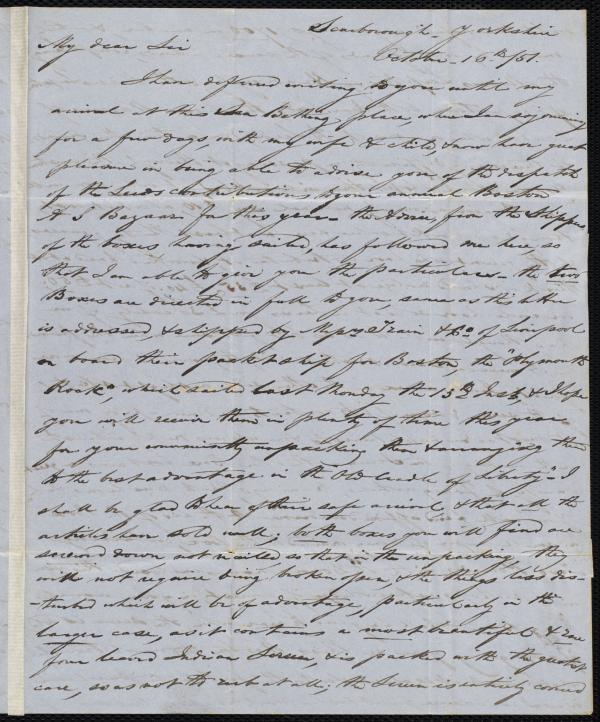 Scarborough - Yorkshire
October - 16th /51.
My dear Sir
I have deferred writing to you until my
arrival at this Sea Bathing place, where I am sojourning
for a few days, with my wife & child, & now have great
pleasure in being able to advise you of the dispatch
of the Leeds contributions to your annual Boston
A S Bazaar for this year - the Advice, from the Shippers
of the boxes having sailed, has followed me here, so
that I am able to give you the particulars - the two
Boxes are directed in full to you, same as this letter
is addressed, & shipped by Messrs Train & Co of Liverpool
on board their packet ship for Boston, the "Plymouth
Rock", which sailed last Monday the 13th Inst, & I hope
you will receive them in plenty of time this year
for your committee unpacking them & arranging them
to the best advantage in the "Old Cradle of Liberty" - I
shall be glad to hear of their safe arrival & that all the
articles have sold well; both boxes you will find are
screwed down, not nailed, so that in the unpacking, they
will not require being broken open, & the things less dis-
-turbed which will be of advantage, particularly in the
larger case, as it contains a most beautiful & rare
four leaved Indian Screen, & is packed with the greatest
care, so as not to rub at all; the Screen is entirely